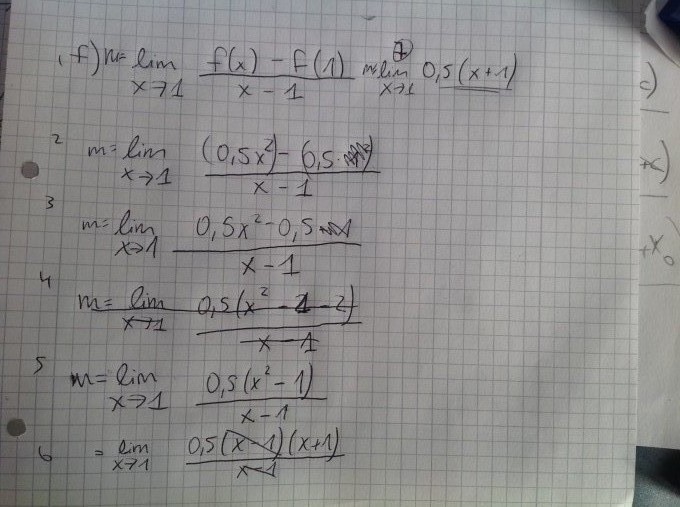 f) m = lim x→1 (f(x) - f(1))/(x - 1) 7 m = lim x→1 0,5(x+1)
2 m = lim x→1 ((0,5x²) - (0,5·))/(x - 1)
3 m = lim x→1 (0,5x² - 0,5)/(x - 1)
4 m = lim x→1 0,5(x² - 1 - 2)/(x - 1)
5 m = lim x→1 0,5(x² - 1)/(x - 1)
6 = lim x→1 0,5(x - 1)(x+1)/(x - 1)
c)
+x)
+x₀